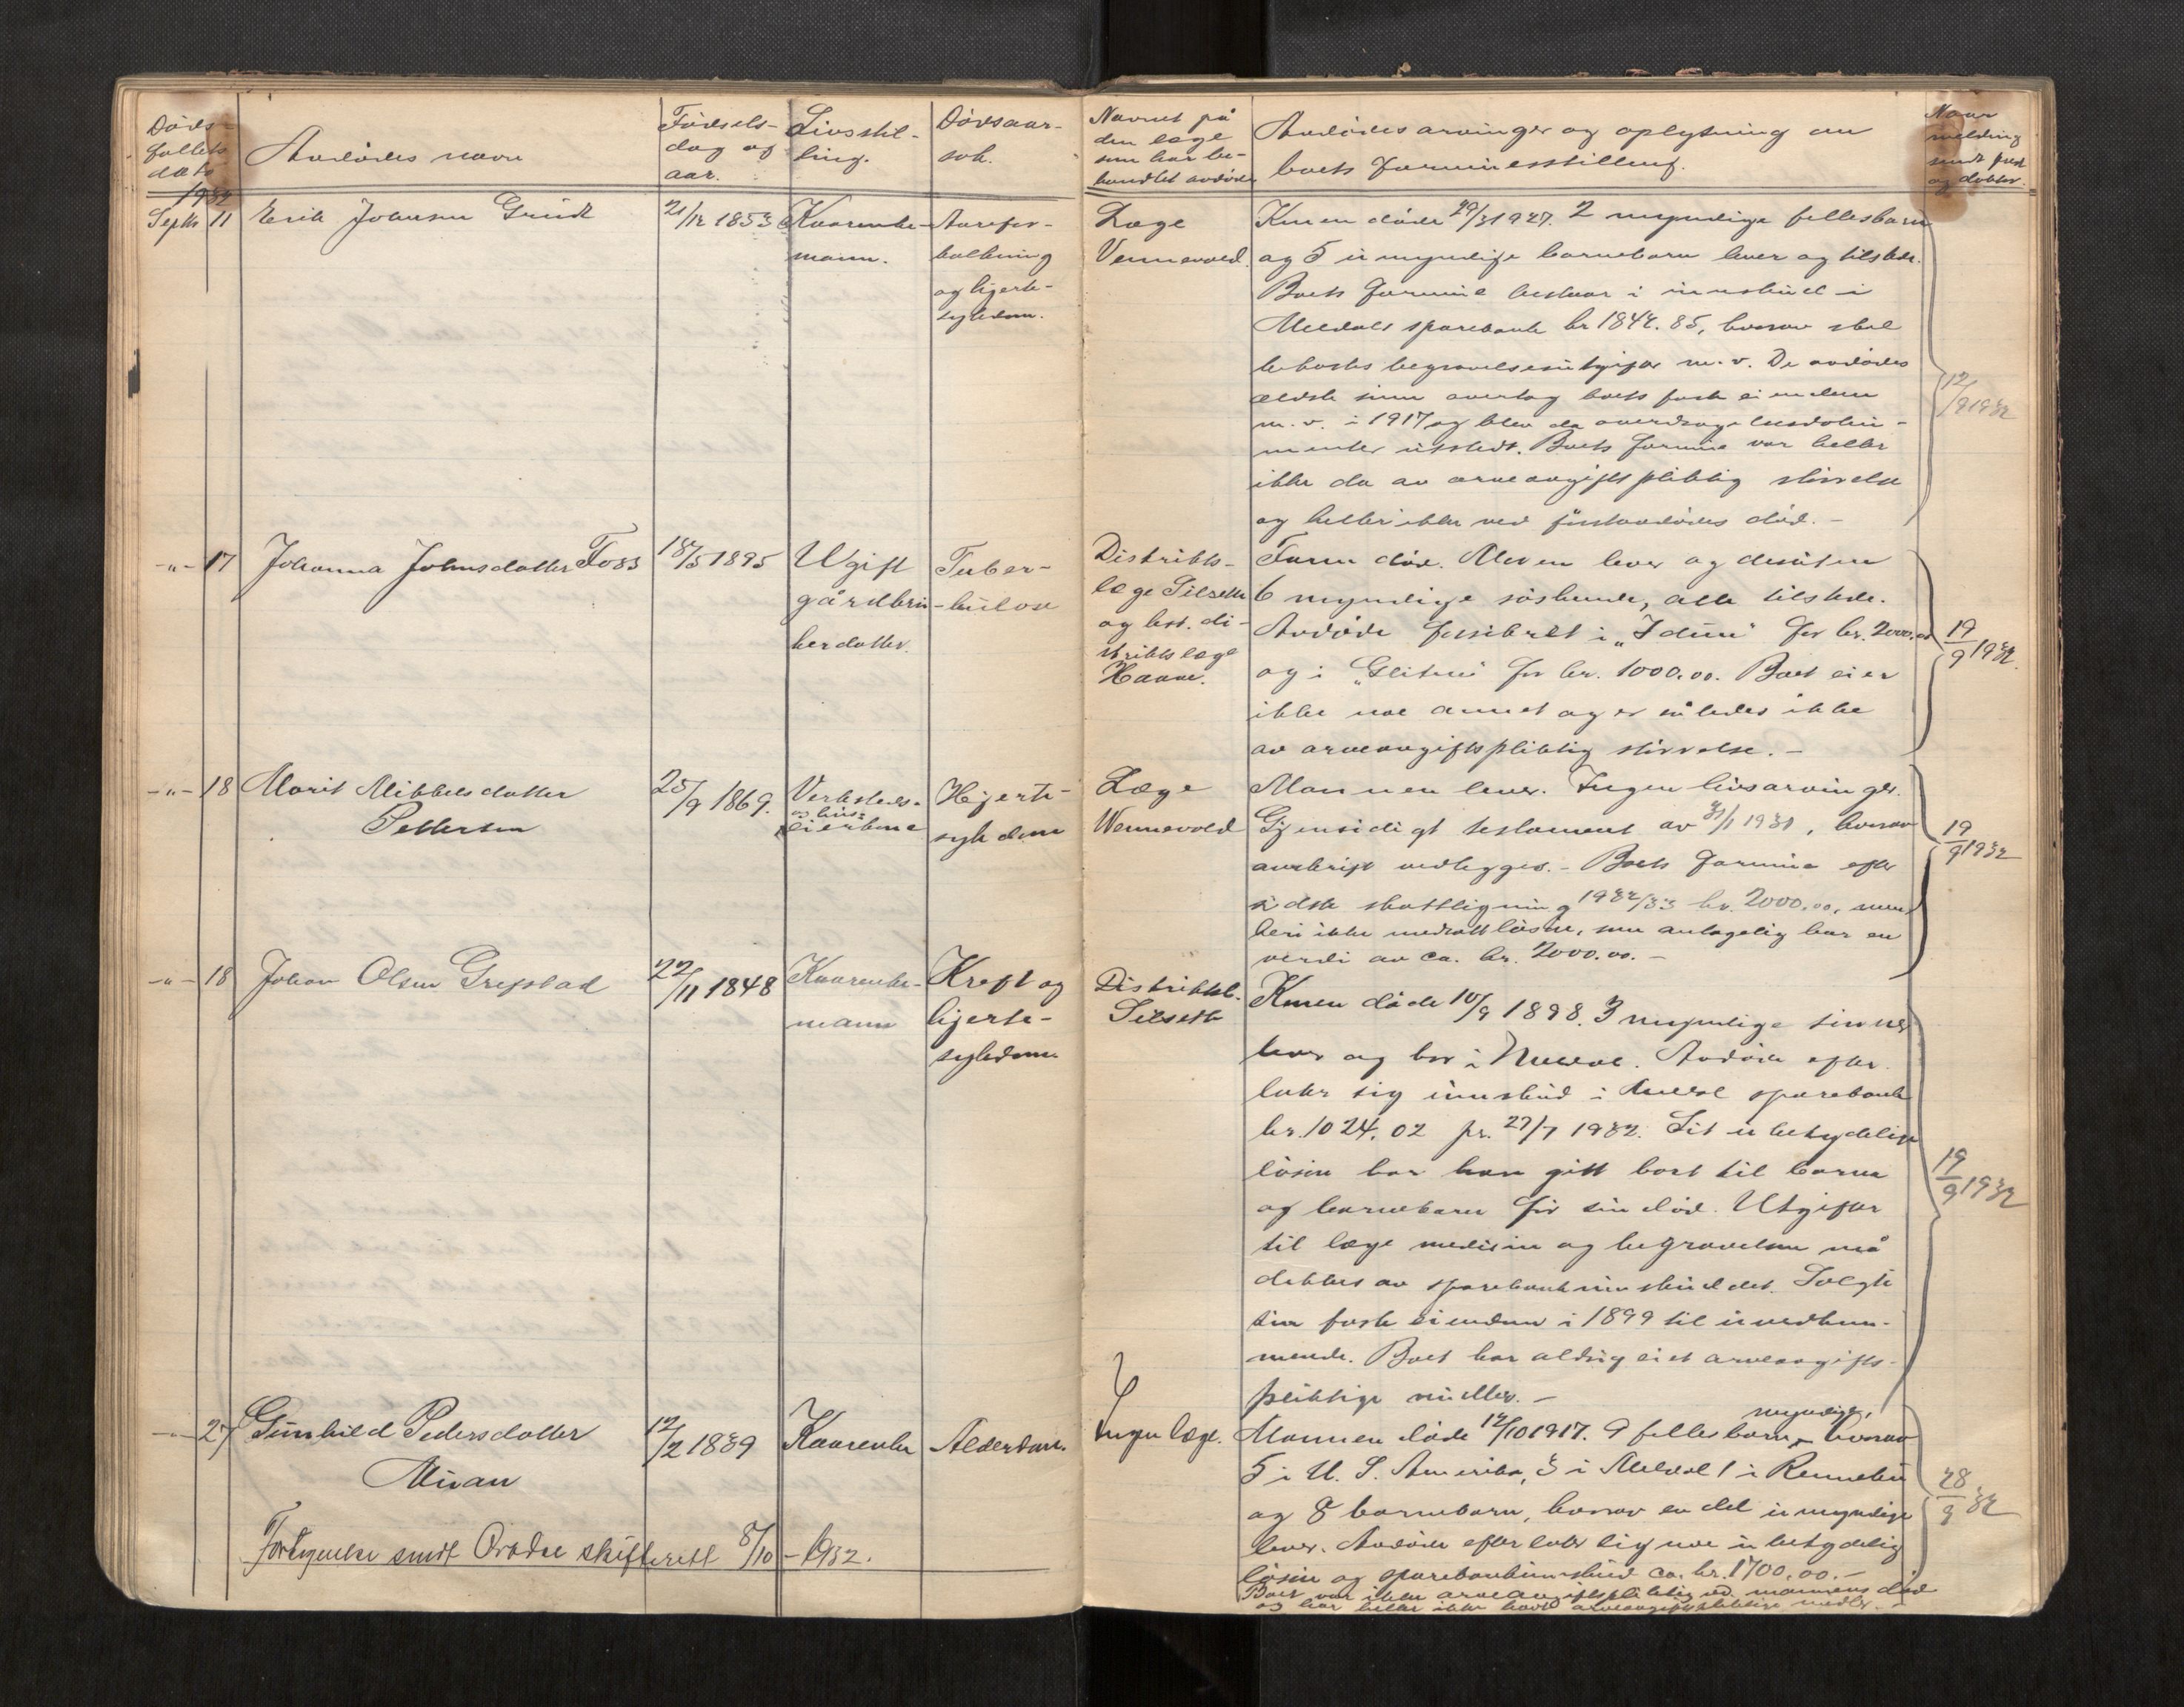 Dødsfallets dato
Avdødes navn
Fødselsdag og aar.
Livsstilling.
Dødsaarsak.
Navnet på
den læge
som har be-
handlet avdøde
Avdødes arvinger og oplysning om
boets formuesstilling.
Naar
melding
sendt fra
og doktor.
1932
Septr 11
Erik Johnsen Grudt
21/12 1853
Kaarenke-
mann.
Aarefor-
kalkning
og hjerte-
sykdom.
Læge
Vennevold.
Konen døde 29/3 1927. 2 myndige fellesbarn
og 5 umyndige barnebarn lever og tilstede.
Boets formue bestaar i innskud i
Meldals sparebank kr 1842.85, hvorav skal
bekostes begravelsesutgifter m.v. De avdødes
eldste sønn overtog boets faste eiendom
m.v. i 1917 og blev da overdragelsesdoku-
menter utstedt. Boets formue var heller
ikke da av arveavgiftspliktig størrelse
og heller ikke ved førstavdødes død. -
12/9 1932
-"- 17
Johanna Johnsdatter Foss
18/5 1895
Ugift
gårdbru-
kerdatter.
Tuber-
kulose
Distrikts-
læge Silseth
og kst. di-
striktslæge
Hanne.
Faren død. Moren lever og desuten
6 myndige søskende, alle tilstede.
Avdøde forsikret i "Idun" for kr. 2000.00
og i "Glitne" for kr. 1000.00. Boet eier
ikke noe annet og er således ikke
av arveavgiftspliktig størrelse. -
19/9 1932.
-"- 18
Marit Mikkelsdatter
Pettersen
25/9 1869.
Verksteds-
og hus-
eierkone
Hjerte-
sykdom
Læge
Wennevold
Mannen lever. Ingen livsarvinger.
Gjensidigt testament av 31/1 1931, hvorav
avskrift vedlegges. - Boets formue efter
sidste skatteligning 1932/33 kr. 2000.00, men
heri ikke medtatt løsøre, som antagelig har en
verdi av ca. kr. 2000.00. -
19/9 1932
-"- 18
Johan Olsen Grefstad
22/11 1848
Kaarenke-
mann
Kreft og
hjerte-
sykdom
Distriktsl.
Silseth
Konen døde 10/9 1898. 3 myndige sønner
lever og bor i Meldal. Avdøde efter-
later sig innskud i Meldal sparebank
kr. 1024.02 pr. 27/7 1932. Sit ubetydelige
løsøre har han gitt bort til barna
og barnebarn før sin død. Utgifter
til læge medisin og begravelse må
dekkes av sparebankinnskuddet. Solgte
sin faste eiendom i 1899 til uvedkom-
mende. Boet har aldrig eiet arveavgifts-
pliktige midler. -
19/9 1932
-"- 27
Gunhild Pedersdatter
Moan
12/2 1839
Kaarenke
Alderdom.
Ingen læge.
Mannen døde 12/10 1917. 9 felles barn, myndige, hvorav
5 i U. S. Amerika, 3 i Meldal 1 i Rennebu
og 8 barnebarn, hvorav en del umyndige
lever. Avdøde efterlater sig noe ubetydelig
løsøre og sparebankinnskud ca. kr. 1700.00. -
Boet var ikke arveavgiftspliktig ved mannens død
og har heller ikke havd arveavgiftspliktige midler. -
28/9 32
Fortegnelse sendt Orkdal skifterett 8/10 - 1932.